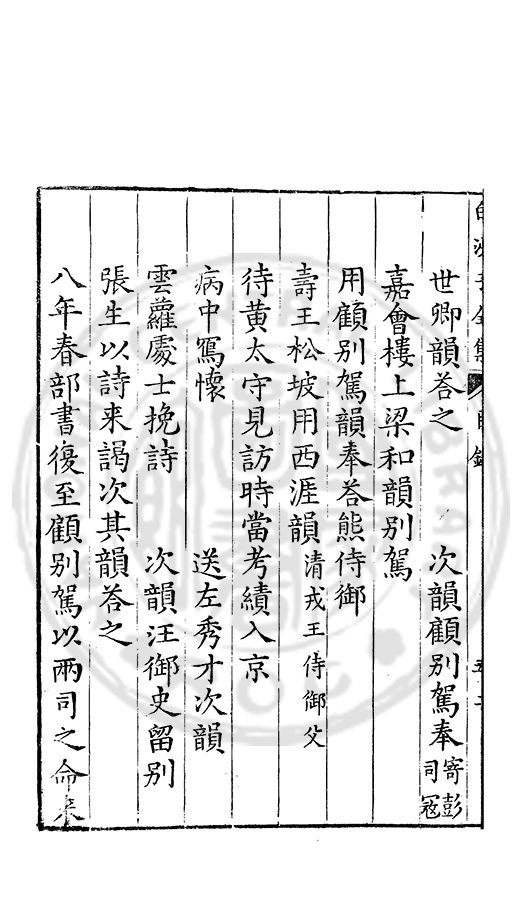 世卿韻荅之　次韻顧別駕奉寄彭司寇
嘉會樓上梁和韻別駕
用顧別駕韻奉荅熊侍御
壽王松坡用西涯韻清戎王侍御父
待黃太守見訪時當考績入京
病中寫懷　送左秀才次韻
雲蘿處士挽詩　次韻汪御史留別
張生以詩来謁次其韻荅之
八年春部書復至顧別駕以兩司之命来